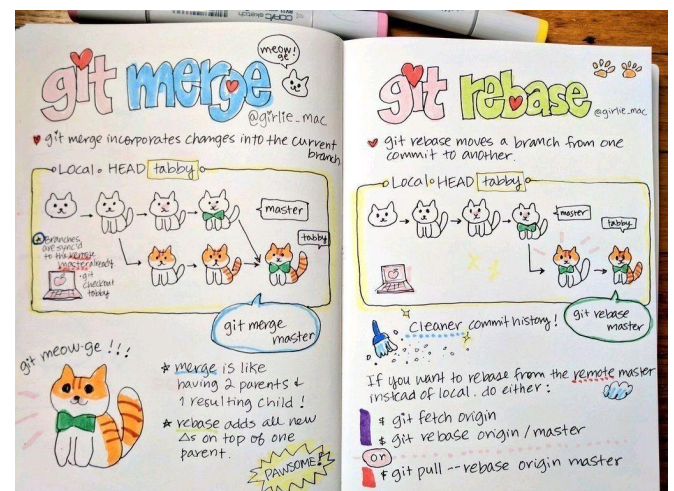 git merge
meow!
ge
@girlie_mac
git merge incorporates changes into the current
branch
Local HEAD tabby
master
tabby
Branches
are sync'd
to the remote
master already
git
checkout
tabby
git merge
master
git meow-ge !!!
merge is like
having 2 parents &
1 resulting child !
rebase adds all new
Δs on top of one
parent.
PAWSOME!
git rebase
@girlie_mac
git rebase moves a branch from one
commit to another.
Local HEAD tabby
master
tabby
git rebase
master
Cleaner commit history!
If you want to rebase from the remote master
instead of local. do either:
$ git fetch origin
$ git rebase origin/master
or
$ git pull --rebase origin master